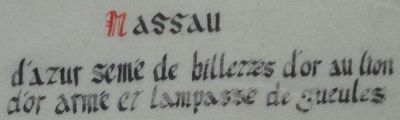 Nassau
d'azur semé de billettes d'or au lion
d'or armé et lampassé de gueules